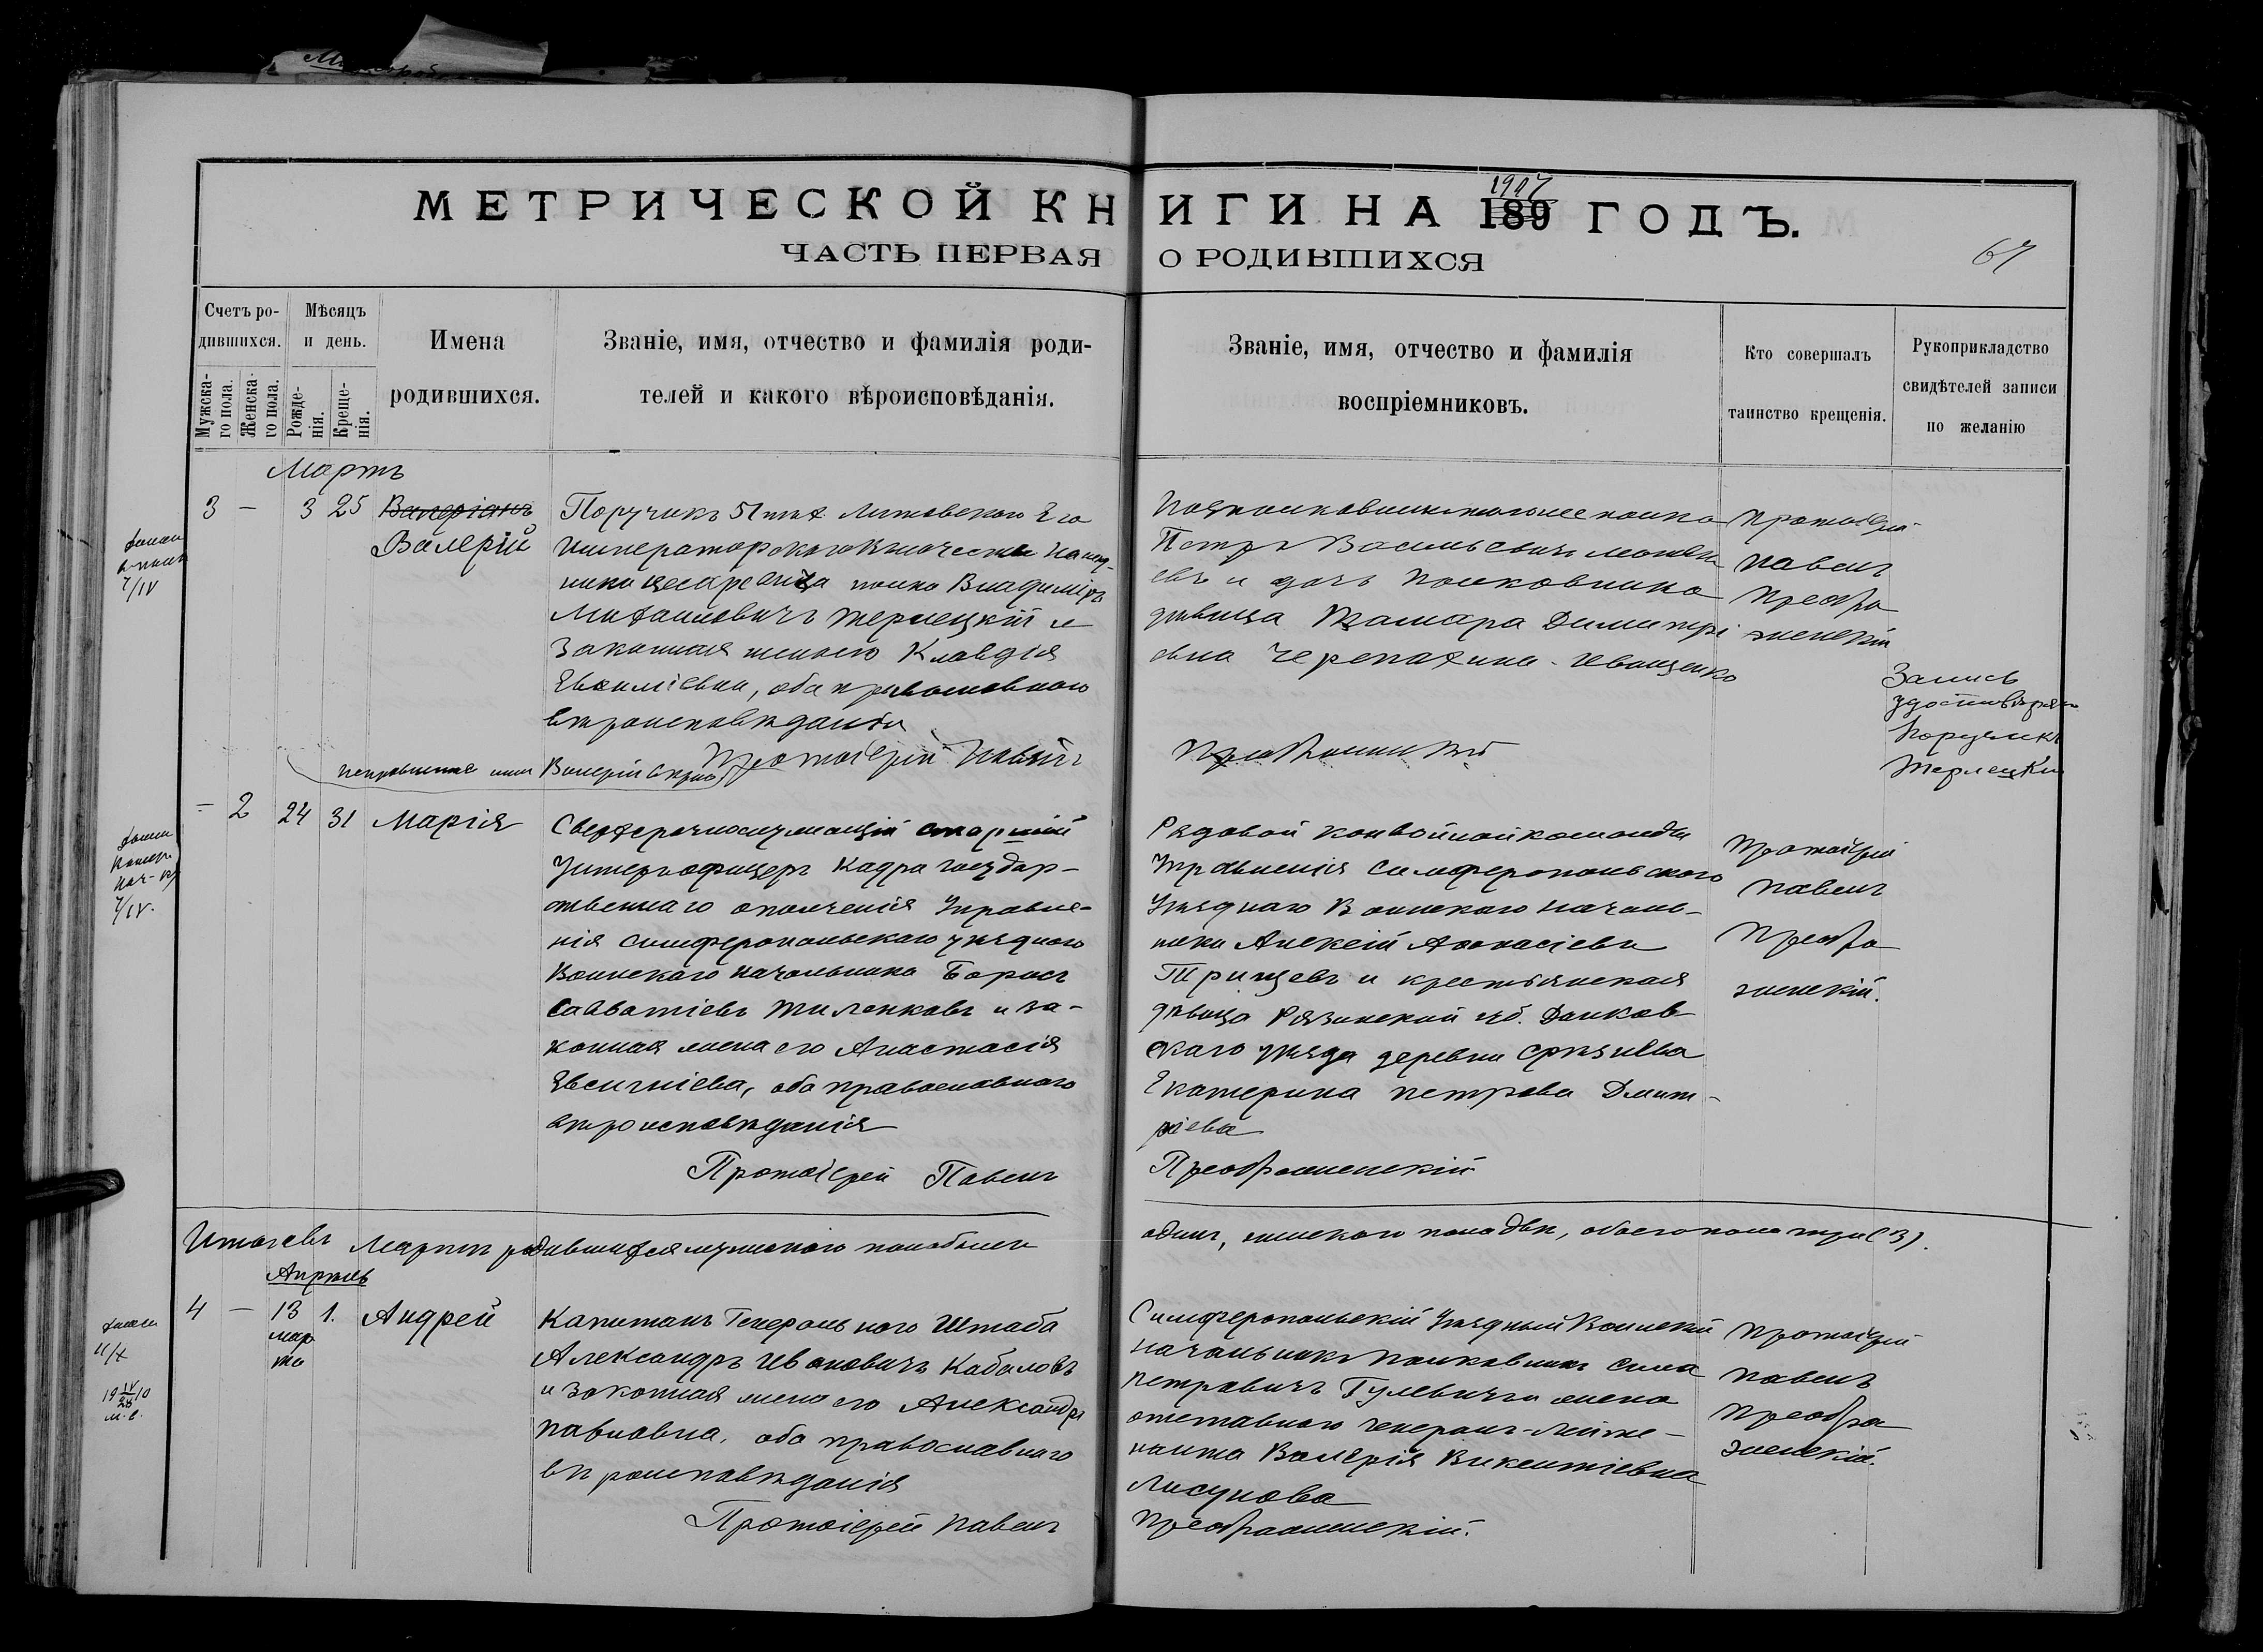 МЕТРИЧЕСКОЙ КНИГИ НА 1907 189 ГОДЪ.
ЧАСТЬ ПЕРВАЯ О РОДИВШИХСЯ
67
Счетъ ро-
дившихся.
Мужска-
го пола.
Женска-
го пола.
Мѣсяцъ
и день.
Рожде-
нія.
Креще-
нія.
Имена
родившихся.
Званіе, имя, отчество и фамилія роди-
телей и какого вѣроисповѣданія.
Званіе, имя, отчество и фамилія
воспріемниковъ.
Кто совершалъ
таинство крещенія.
Рукоприкладство
свидѣтелей записи
по желанію
Мартъ
3 — 3 25 Валеріанъ
Валерій
7/IV
Поручикъ 51 пѣх. Литовскаго Его
Императорскаго Высочества Наслѣд-
ника Цесаревича полка Владиміръ
Михаиловичъ Терлецкій и
законная жена его Клавдія
Евѳиміевна, оба православнаго
вѣроисповѣданія
Протоіерей Павелъ
Преображенскій
Подполковникъ того же полка
Петръ Васильевичъ
евъ и дочь полковника
дѣвица Тамара Димитрі
евна Черепахина-Иващенко
Протоіерей
Павелъ
Преобра
женскій
Запись
удостовѣряю
Поручикъ
Терлецкій
Валерій вѣрно
— 2 24 31 Марія
7/IV.
Сверхсрочнослужащій старшій
Унтеръ-офицеръ Кадра Государ-
ственнаго ополченія Управле-
нія Симферопольскаго уѣзднаго
Воинскаго Начальника Борисъ
Савватіевъ Тиленковъ и за-
конная жена его Анастасія
Евсигніева, оба православнаго
вѣроисповѣданія
Протоіерей Павелъ
Преображенскій
Рядовой конвойной команды
Управленія Симферопольскаго
Уѣзднаго Воинскаго Началь-
ника Алексій Аѳанасіевъ
Трищевъ и крестьянская
дѣвица Рязанской губ. Данков
скаго уѣзда деревни
Екатерина Петрова Дмит-
ріева
Протоіерей
Павелъ
Преобра
женскій.
Итого въ Мартѣ родившихся мужского пола былъ
одинъ, женскаго пола двѣ, обоего пола три (3).
Апрѣль
4 — 13 1. Андрей
мар
та
19 IV/28 10
Капитанъ Генеральнаго Штаба
Александръ Ивановичъ Кабаловъ
и законная жена его Александра
Павловна, оба православнаго
вѣроисповѣданія
Протоіерей Павелъ
Преображенскій.
Симферопольскій Уѣздный Воинскій
начальникъ Полковникъ Сила
Петровичъ Гулевичъ и жена
отставного Генералъ-Лейте-
нанта Валерія Викентіевна
Лисунова
Протоіерей
Павелъ
Преобра
женскій.